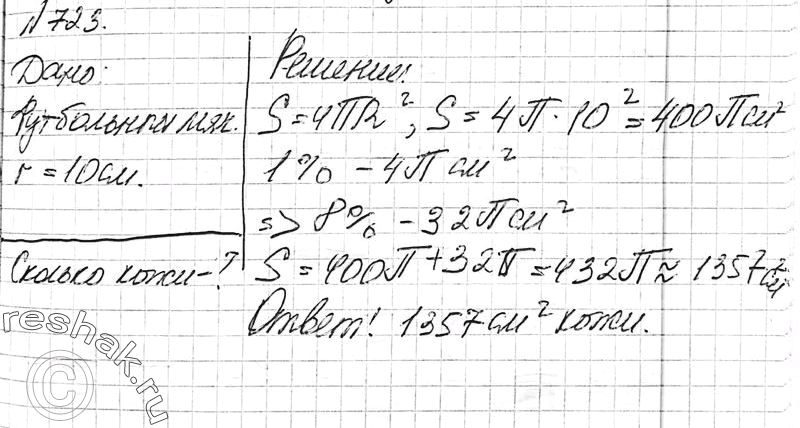 №723.
Дано:
Футбольный мяч.
r = 10 см.
Сколько кожи-?
Решение:
S = 4ПR², S = 4П · 10² = 400П см²
1% - 4П см²
=> 8% - 32П см²
S = 400П + 32П = 432П ≈ 1357 см²
Ответ: 1357 см² кожи.
reshak.ru
©